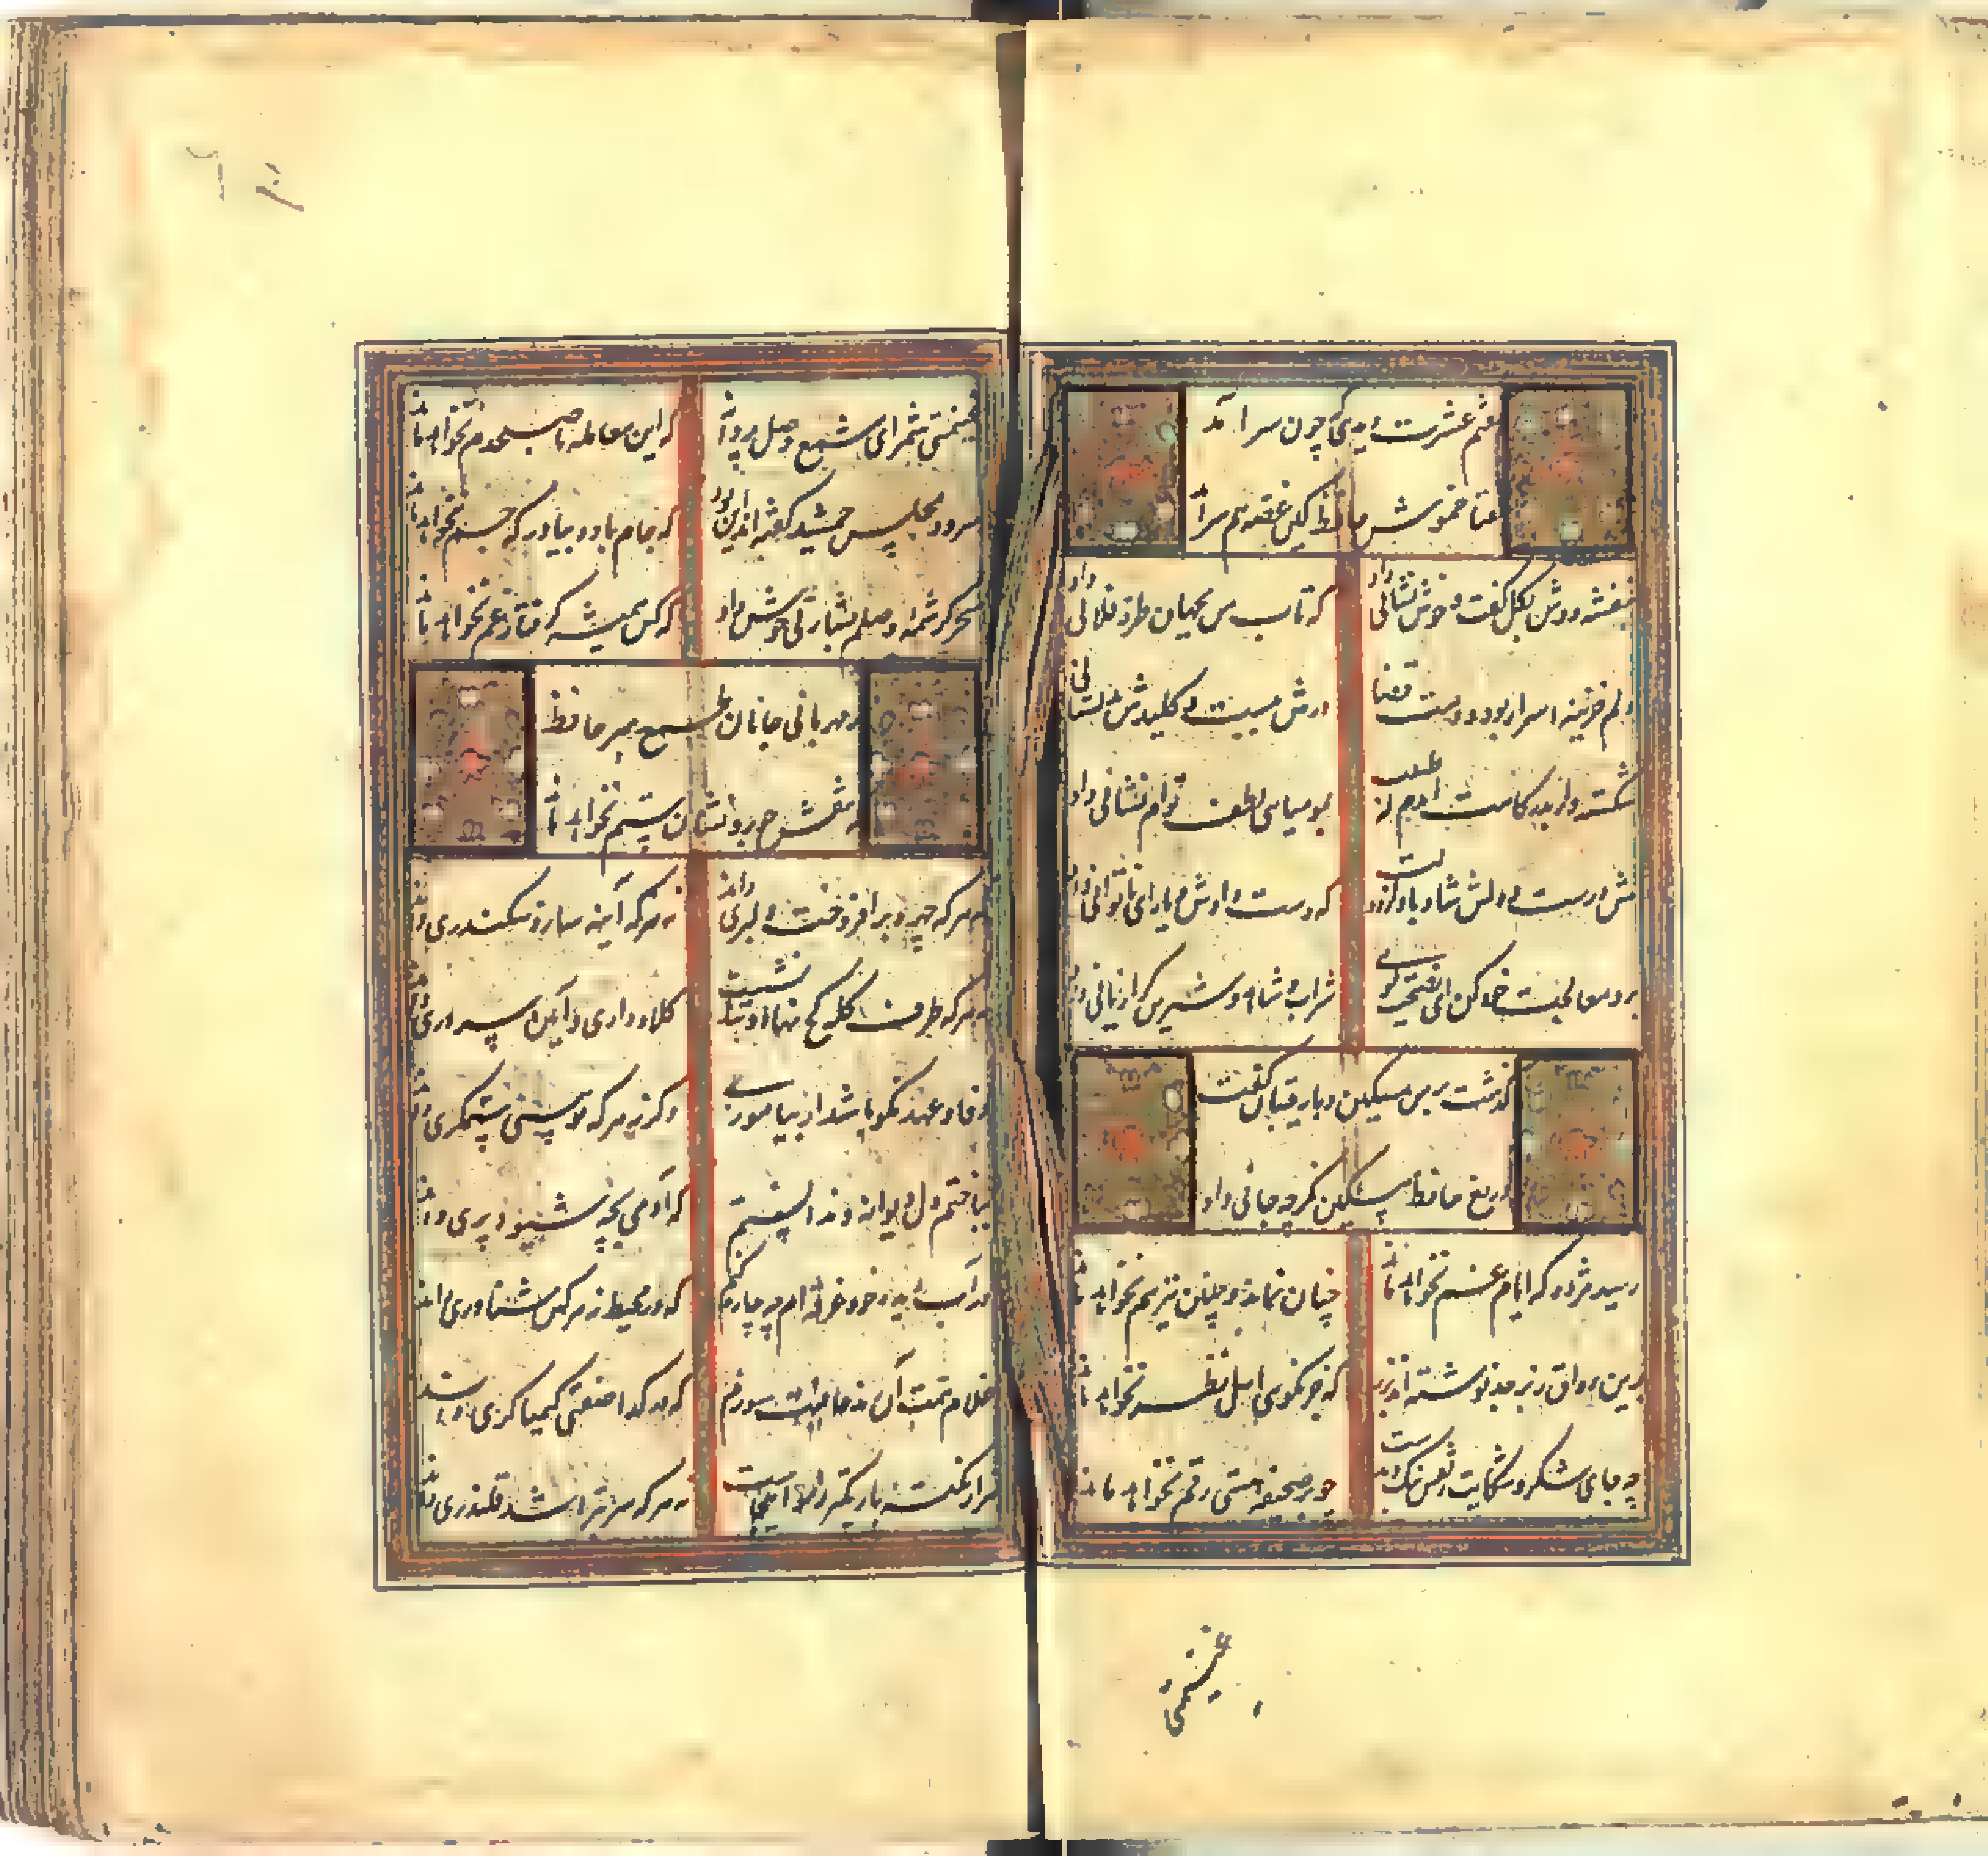 بنفشه دوش بگل گفت و خوش نشانی داد
که تاب من بجهان طره فلانی داد
دلم خزینه اسرار بود و دست قضا
درش ببست و کلیدش بدلستانی داد
شکسته وار بدرگاهت آمدم که طبیب
بمومیایی لطف توام نشانی داد
تنش درست و دلش شاد باد
که دست دادش و یاری ناتوانی داد
برو معالجت خود کن ای نصیحت گوی
شراب و شاهد و شیرین کرا زیانی داد
گذشت بر من مسکین و با رقیبان گفت
دریغ حافظ مسکین من چه جانی داد
رسید مژده که ایام غم نخواهد ماند
چنان نماند و چنین نیز هم نخواهد ماند
برین رواق زبرجد نوشته اند بزر
که جز نکوی اهل نظر نخواهد ماند
چه جای شکر و شکایت ز نقش نیک و بدست
چو بر صحیفه هستی رقم نخواهد ماند
غنیمتی
غنیمتی شمر ای شمع وصل پروانه
که این معامله تا صبحدم نخواهد ماند
سرود مجلس جمشید گفته اند این بود
که جام باده بیاور که جم نخواهد ماند
سحر کرشمه وصلم بشارتی خوش داد
که کس همیشه گرفتار غم نخواهد ماند
ز مهربانی جانان طمع مبر حافظ
که نقش جور و نشان ستم نخواهد ماند
نه هر که چهره برافروخت دلبری داند
نه هر که آینه سازد سکندری داند
نه هر که طرف کله کج نهاد و تند نشست
کلاه داری و آیین سروری داند
وفا و عهد نکو باشد ار بیاموزی
وگرنه هر که تو بینی ستمگری داند
بباختم دل دیوانه و ندانستم
که آدمی بچه شیوه پری داند
در آب دیده خود غرقه ام چه چاره کنم
که در محیط نه هر کس شناوری داند
غلام همت آن رند عافیت سوزم
که در گدا صفتی کیمیاگری داند
هزار نکته باریکتر ز مو اینجاست
نه هر که سر بتراشد قلندری داند